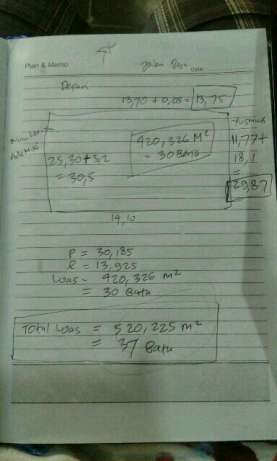 Plan & Memo
Jalan Raya
Date
Depan
13,70 + 0,05 = 13,75
420,326 M²
= 30 Bata
25,30 + 5,2
= 30,5
11,77 +
18,1
=
29,87
14,10
P = 30,185
L = 13,925
Luas = 420,326 m²
= 30 Bata
Total Luas = 520,225 m²
= 37 Bata